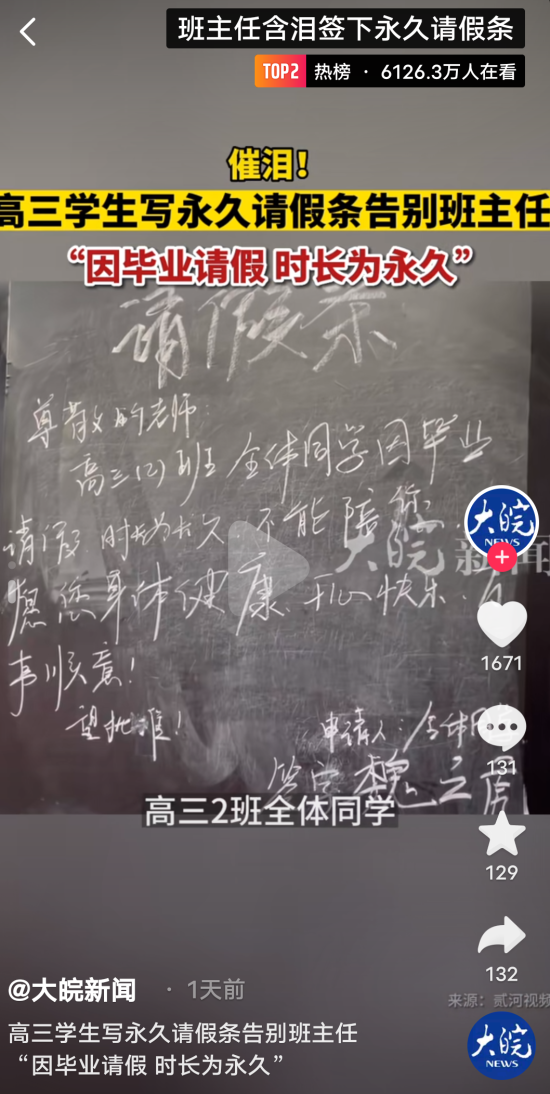 班主任含泪签下永久请假条
TOP2 热榜 · 6126.3万人在看
催泪！
高三学生写永久请假条告别班主任
“因毕业请假 时长为永久”
请假条
尊敬的老师：
高三(2)班全体同学因毕业
请假，时长为永久，不能陪你，
大皖新闻
愿您身体健康、开心快乐、万
事顺意！
望批准！
申请人：全体同学
签字 魏云虎
高三2班全体同学
大皖
NEWS
1671
131
129
132
@大皖新闻 · 1天前
来源：贰河视频
高三学生写永久请假条告别班主任
“因毕业请假 时长为永久”
大皖
NEWS